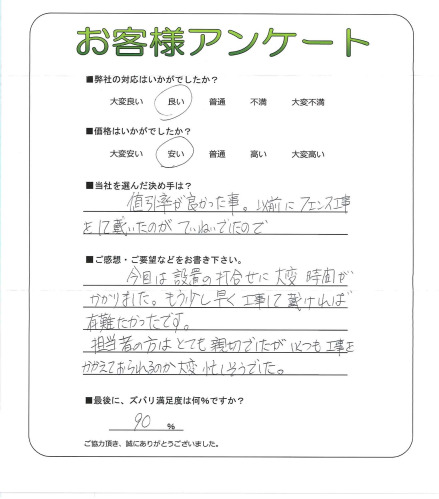 お客様アンケート
■弊社の対応はいかがでしたか？
大変良い 良い 普通 不満 大変不満
■価格はいかがでしたか？
大変安い 安い 普通 高い 大変高い
■当社を選んだ決め手は？
値引率が良かった事。以前にフェンス工事
をして戴いたのがていねいでたので
■ご感想・ご要望などをお書き下さい。
今回は設置の打合せに大変時間が
かかりました。もう少し早く工事して戴ければ
有難たかったです。
担当者の方はとても親切でたがいつも工事を
かかえておられるのか大変忙しそうでした。
■最後に、ズバリ満足度は何%ですか？
90 %
ご協力頂き、誠にありがとうございました。